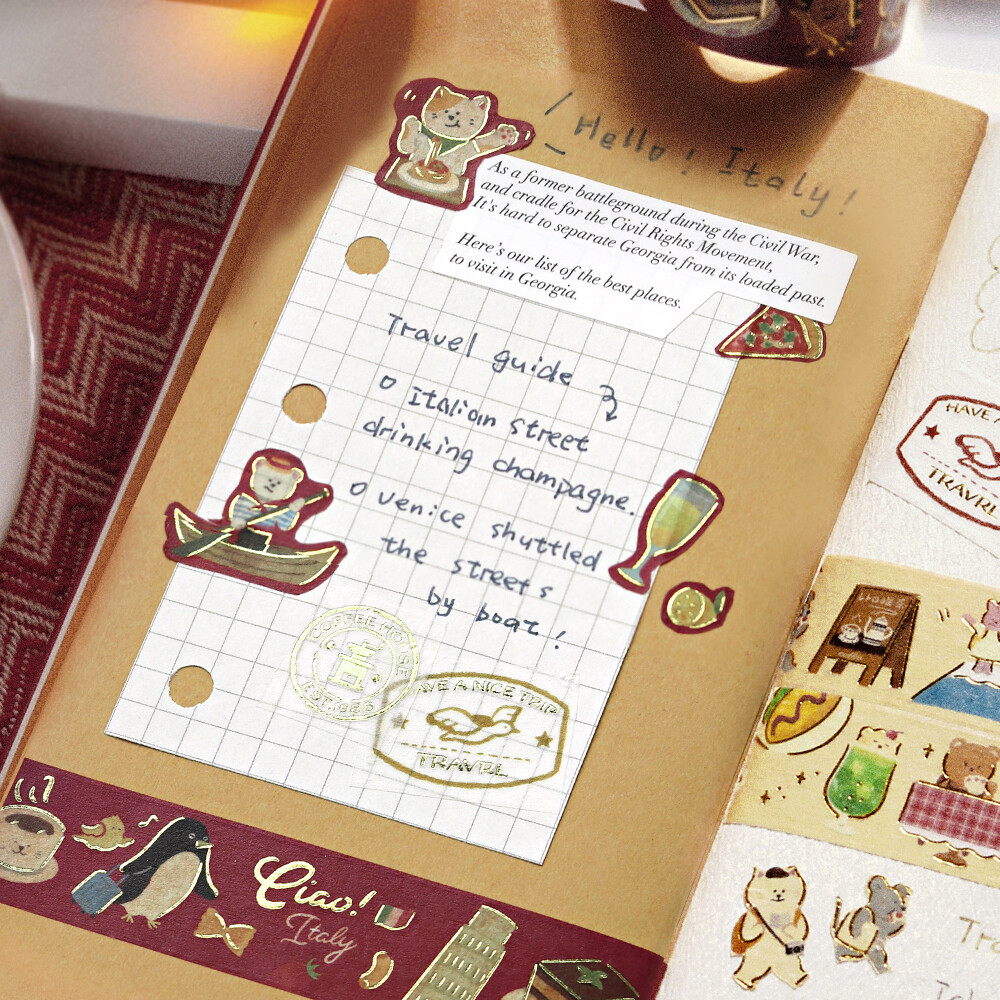 Hello! Italy!
As a former battleground during the Civil War,
and cradle for the Civil Rights Movement,
It's hard to separate Georgia from its loaded past.
Here's our list of the best places.
to visit in Georgia.
Travel guide
o Italian street
drinking champagne.
o venice shuttled
the streets
by boat!
COFFEE HOUSE
喜
EST.1983
HAVE A NICE TRIP
TRAVRL
Ciao!
Italy
HAVE A
TRAVRL